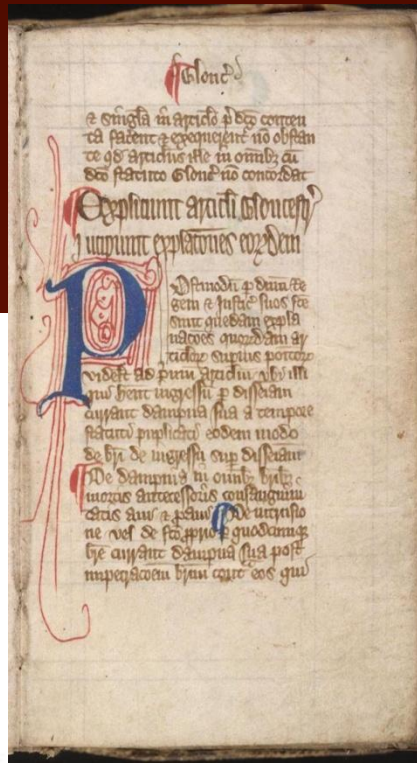 Glouc̄
⁊ singĺa in articĺo p̄dc̄o conten
ta faceret ⁊ exequerent᷑ nō obstan
te qd̓ articĺus ille in omībꝫ cū
dc̄o statuto Glouc̓ nō concordat
Expliciunt articĺi Gloucestr̓
Incipiunt explac̄ones eor̄dem
Postmodū p̄ dnūm Re
gem ⁊ Justic̓ suos fc̄e
sunt quedam expla
nac̄ones quorūdam ar
ticĺor̄ supius poitor̄
videlt᷑ ad p̓mū Articĺm vbi illi
qui hent ingressū p̄ disseiam
currant dampna sua a tempore
statuti puplicati eodem modo
de br̄i de ingressu sup̄ disseiam
De dampnis in omībꝫ br̄ibꝫ
mortis antecessoris consanguini
tatis aui ⁊ p̄aui De intrusio
ne vel de fc̄o p̄prio p̄ quodcumqꝫ
br̄e currant dampna sua post
impetrac̄oem br̄ium cont᷑ eos qui